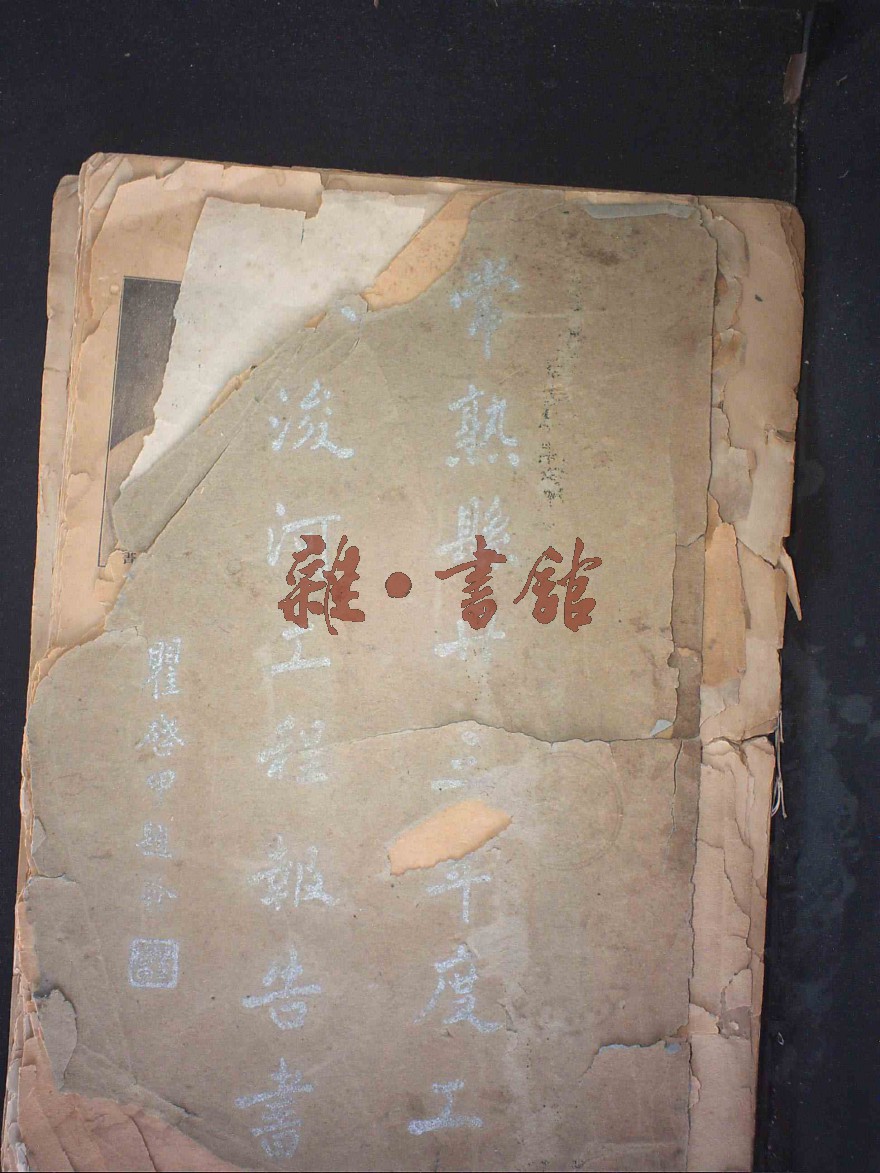 常熟縣廿三年度工
浚河工程報告書
瞿啓甲題
雜·書館